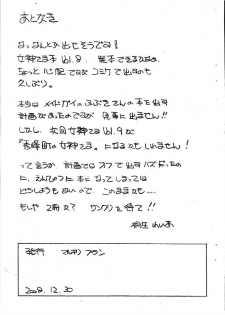 あとがき
なっなんとか出せそうです！
女神さま本 Vol.8. 製本できるかなぁ、
ちょっと心配ですな コミケで出すのも
久しぶり。
本当は メイドガイのふぶきさんの本を出す
計画だったのですが 見事に出ません!!
しかし、次回 女神さま Vol.9 な
になるかもしれません！
って言うか 計画では オフで出すハズだったの
に、えんぴつ本になってしまっては
どうしようもないので、このままでも…
もしや 2冊？ サンクリを待て!!
発行
2008.12.30